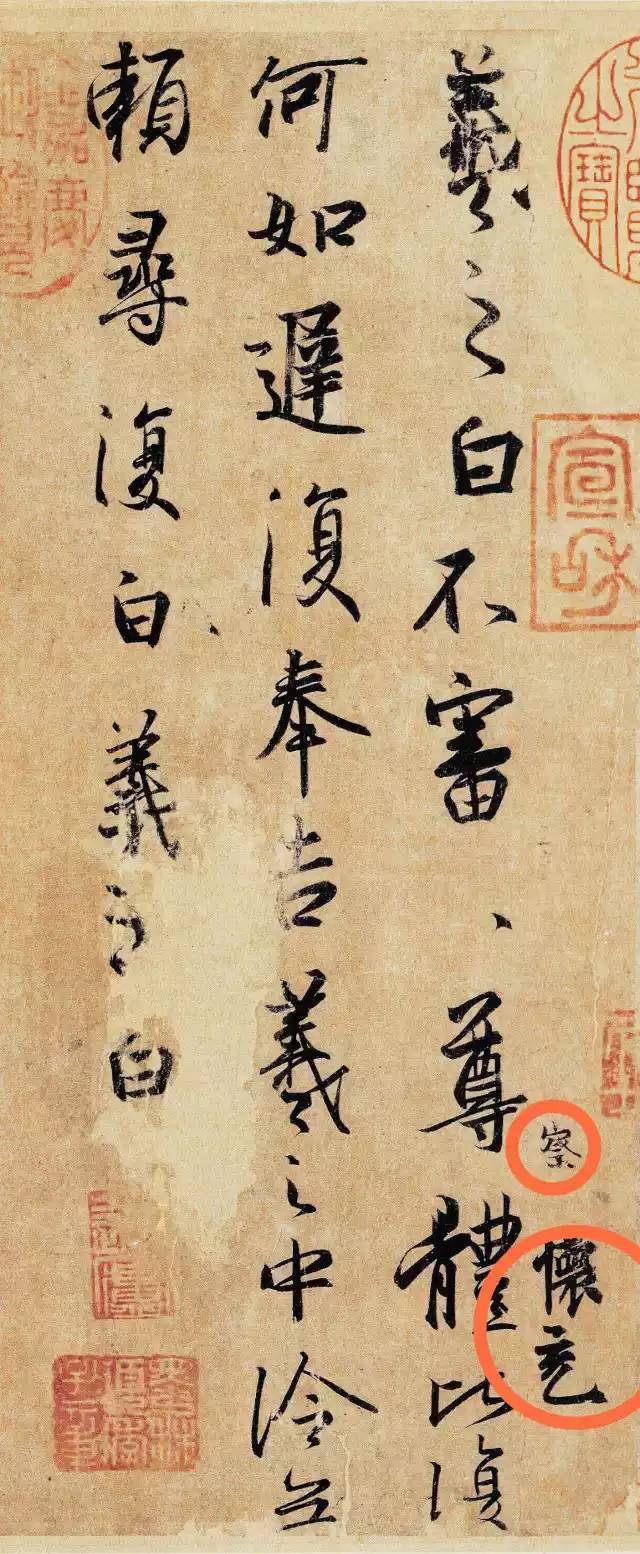 之寶
宣和
察
懷充
羲之白不審、尊體比復
何如遲復奉告羲之中冷無
賴尋復白、羲之白
嘉慶